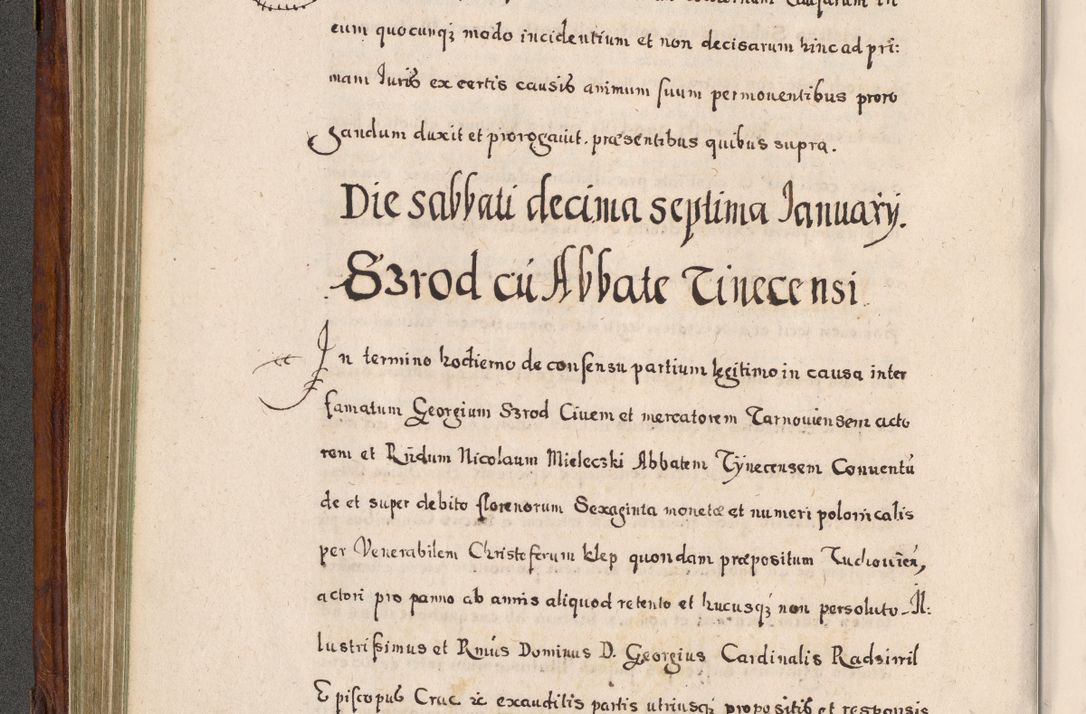 causarum in
eum quocunqꝫ modo incidentium et non decisarum hinc ad pri:
mam Juris ex certis causis animum suum permouentibus proro
gandum duxit et prorogauit. præsentibus quibus supra.
Die sabbati decima septima Januarÿ.
Szrod cū Abbate Tinecensi
In termino hodierno de consensu partium legitimo in causa inter
famatum Georgium Szrod Ciuem et mercatorem Tarnouiensem acto
rem et Rñdum Nicolaum Mieleczki Abbatem Tÿnecensem Conuentū
de et super debito florenorum Sexaginta monetæ et numeri polonicalis
per Venerabilem Christoferum klep quondam præpositum Tuchouieñ,
actori pro panno ab annis aliquod retento et hucusqꝫ non persoluto. Il:
lustrissimus et Rmús Dominus D. Georgius Cardinalis Radsiwil
Episcopus Crac ꝛc exauditis partis utriusqꝫ propositis et responsis